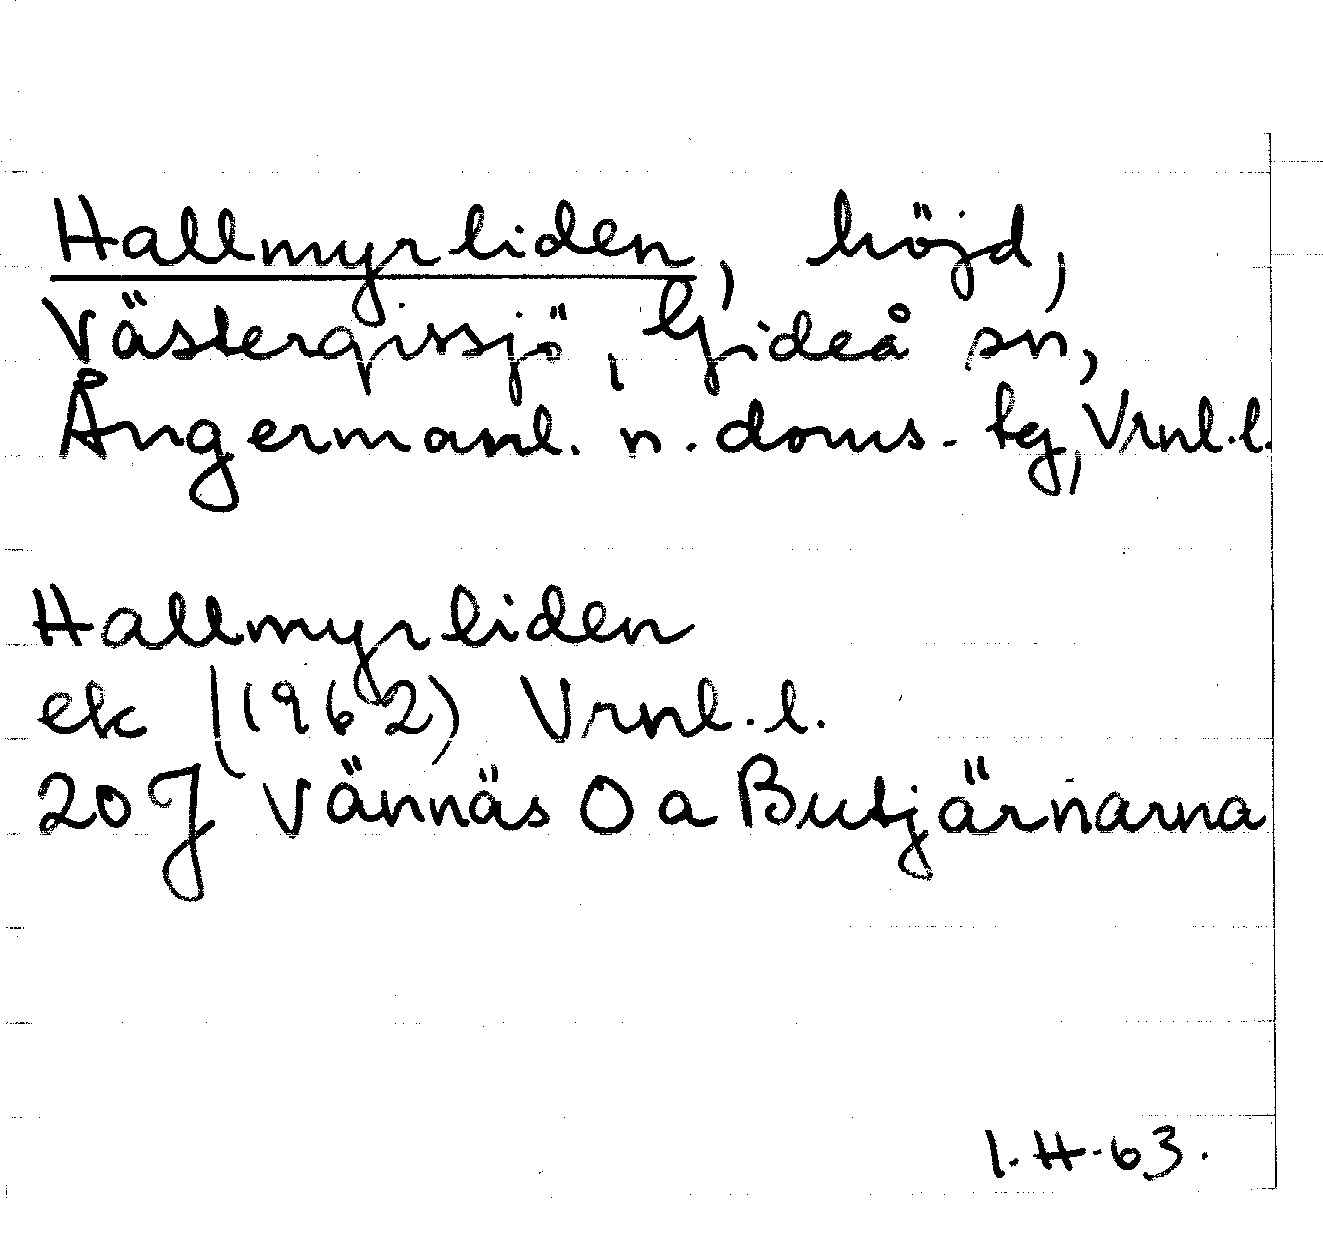 Hallmyrliden, höjd,
Västergissjö, Gideå sn,
Ångermanl. n. doms-tg, Vrnl.l.
Hallmyrliden
ek (1962) Vrnl.l.
20J Vännäs O a Butjärnarna
I.H-63.